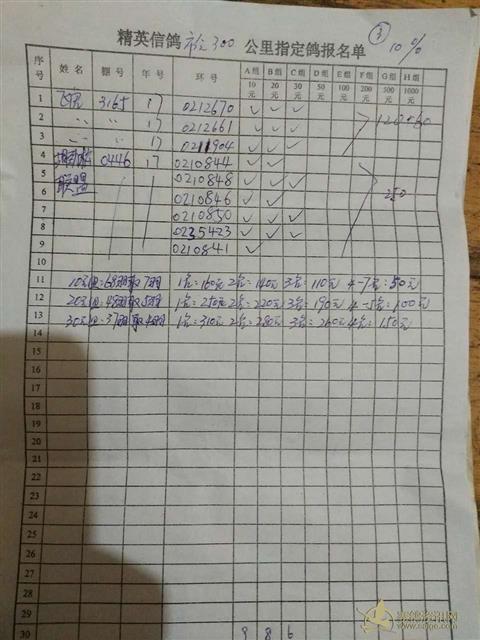 精英信鸽 市上300 公里指定鸽报名单 ③ 10%
序号 姓名 棚号 年号 环号 A组 B组 C组 D组 E组 F组 G组 H组
10元 20元 30元 50元 100元 200元 500元 1000元
1 3165 17 0212670 ✓ ✓ ✓
2 〃 〃 〃 0212661 ✓ ✓ ✓
3 〃 〃 〃 0211904 ✓ ✓ ✓
4 0446 17 0210844 ✓ ✓
5 联盟 0210848 ✓ ✓ ✓
6 0210846 ✓ ✓ 250
7 0210850 ✓ ✓ ✓
8 0235423 ✓ ✓ ✓
9 0210841 ✓
10
11 10元组:68羽取7羽 1名:160元 2名:140元 3名:110元 4-7名:50元
12 20元组:48羽取5羽 1名:250元 2名:220元 3名:190元 4-5名:100元
13 30元组:37羽取4羽 1名:310元 2名:280元 3名:260元 4名:150元
14
15
16
17
18
19
20
21
22
23
24
25
26
27
28
29
30 9 8 6